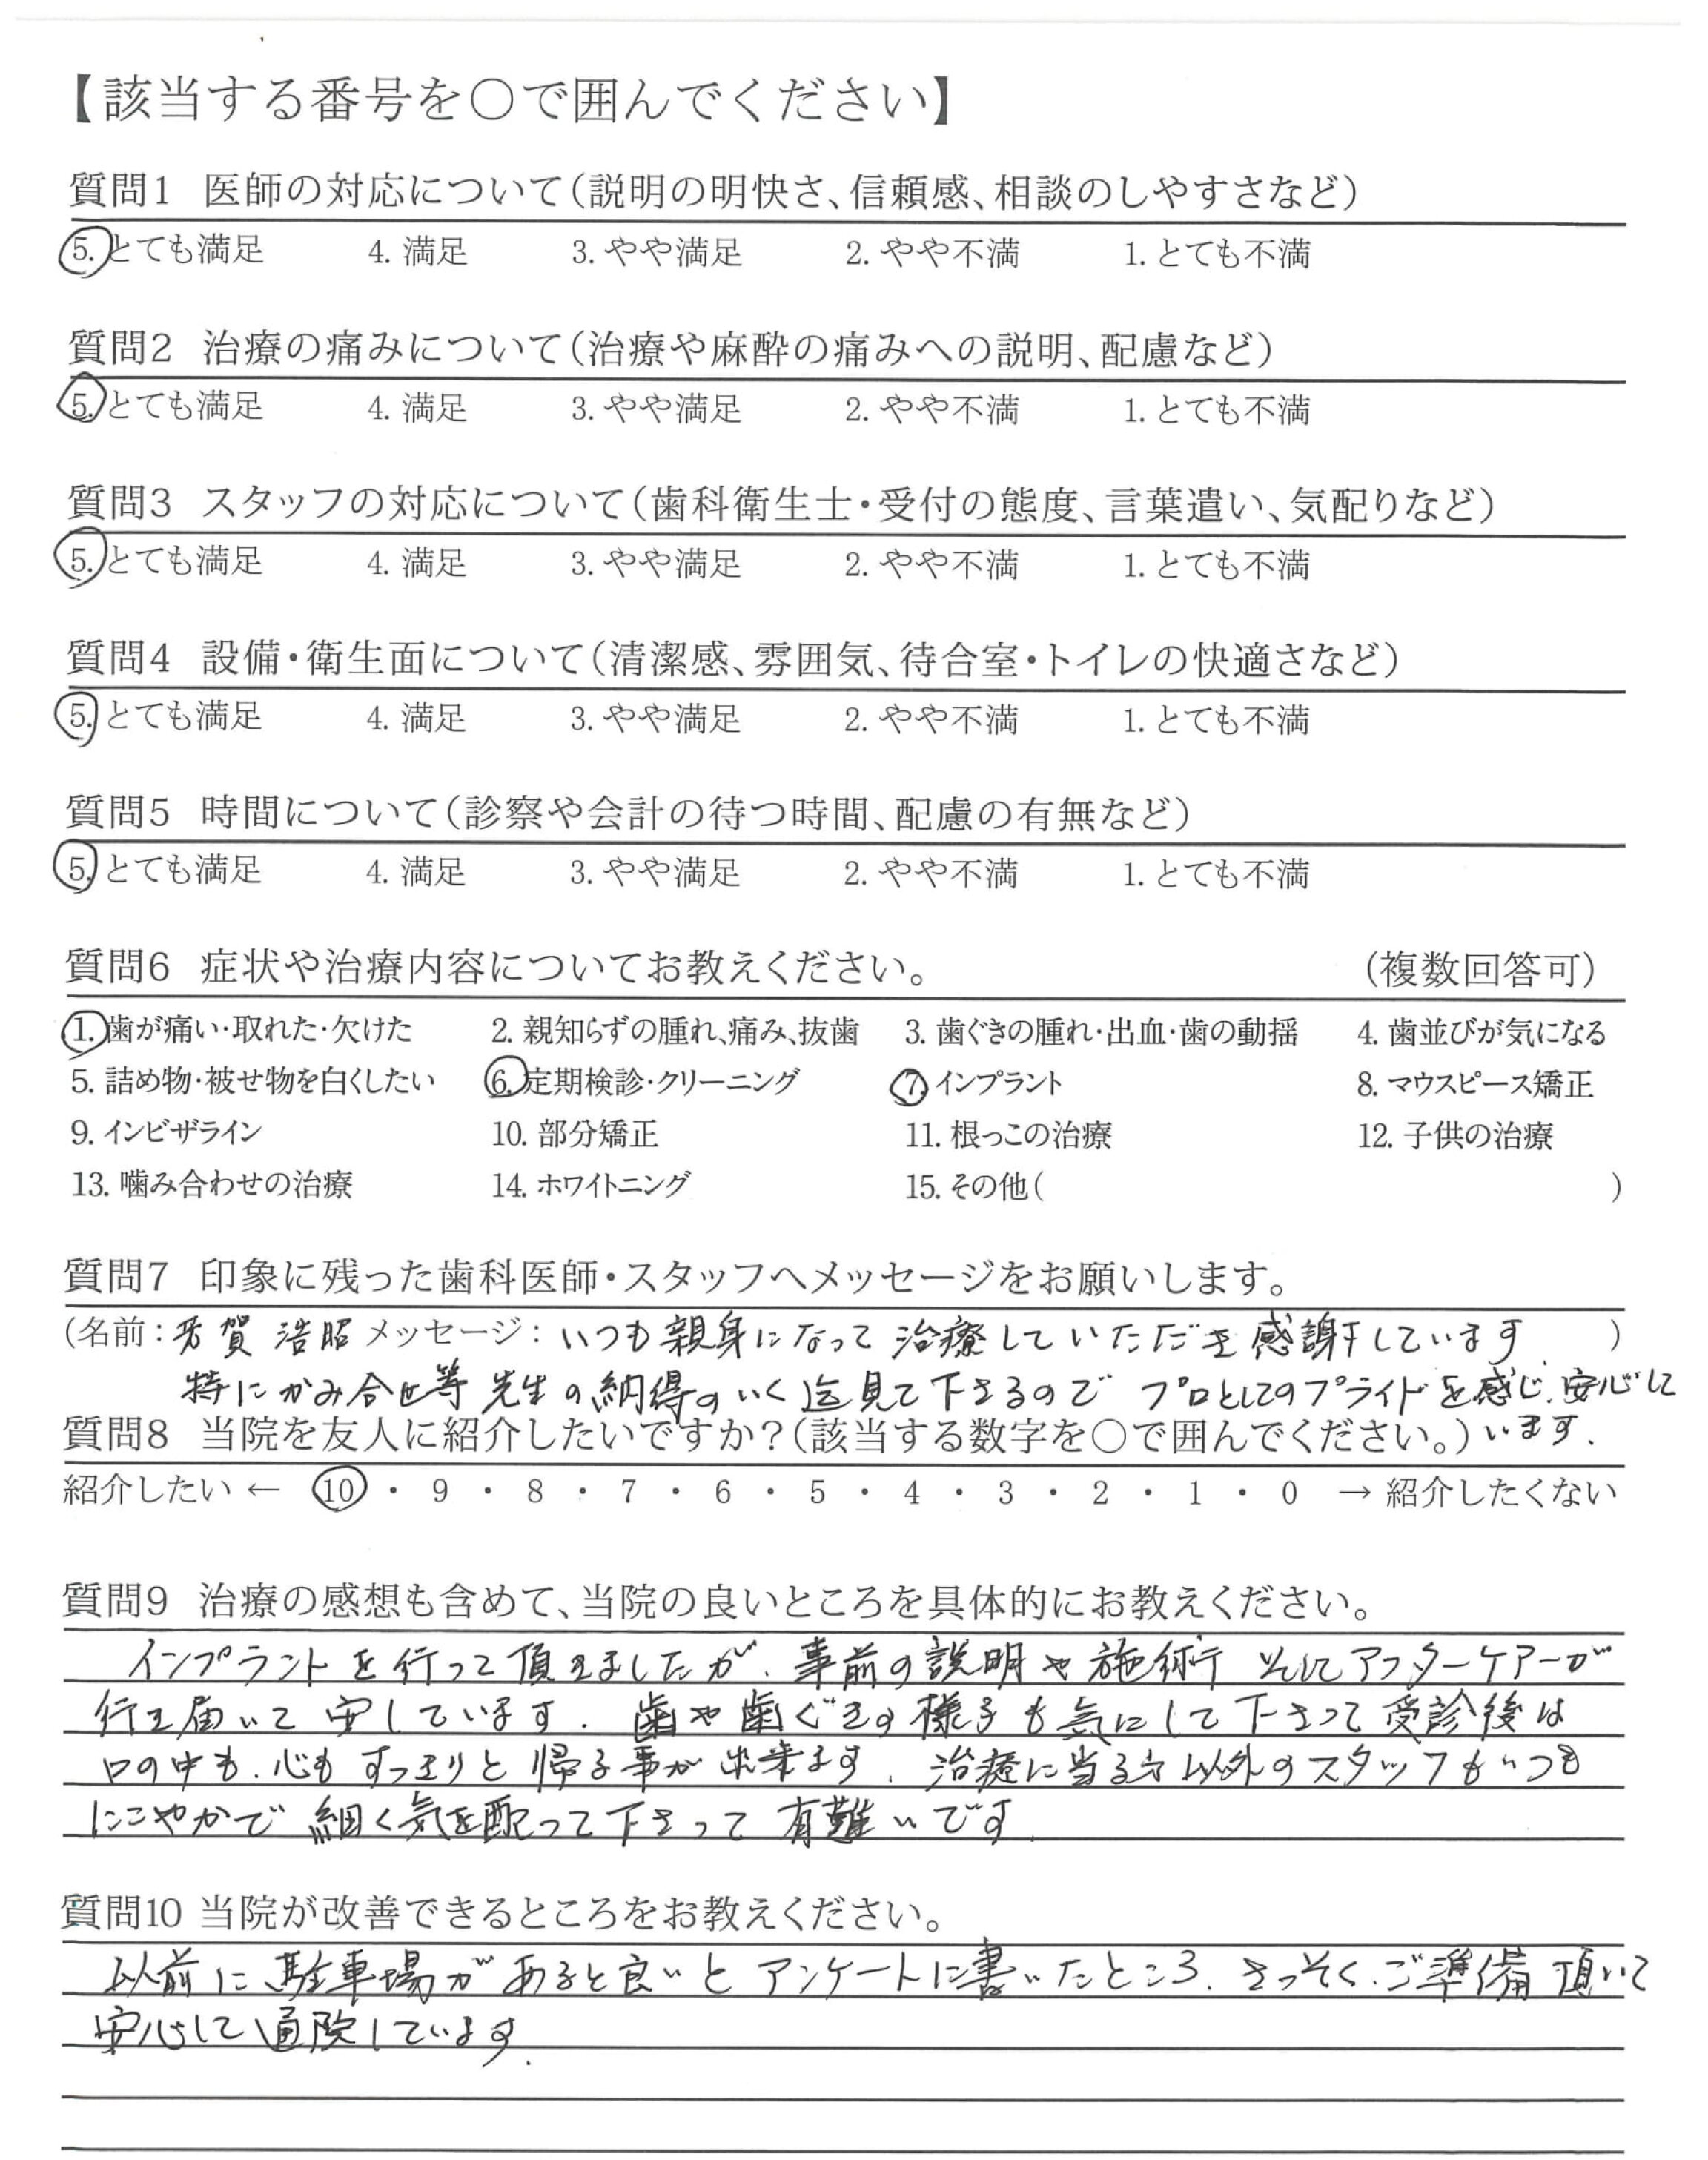 【該当する番号を〇で囲んでください】
質問1 医師の対応について(説明の明快さ、信頼感、相談のしやすさなど)
5. とても満足 4. 満足 3. やや満足 2. やや不満 1. とても不満
質問2 治療の痛みについて(治療や麻酔の痛みへの説明、配慮など)
5. とても満足 4. 満足 3. やや満足 2. やや不満 1. とても不満
質問3 スタッフの対応について(歯科衛生士・受付の態度、言葉遣い、気配りなど)
5. とても満足 4. 満足 3. やや満足 2. やや不満 1. とても不満
質問4 設備・衛生面について(清潔感、雰囲気、待合室・トイレの快適さなど)
5. とても満足 4. 満足 3. やや満足 2. やや不満 1. とても不満
質問5 時間について(診察や会計の待つ時間、配慮の有無など)
5. とても満足 4. 満足 3. やや満足 2. やや不満 1. とても不満
質問6 症状や治療内容についてお教えください。 (複数回答可)
1. 歯が痛い・取れた・欠けた 2. 親知らずの腫れ、痛み、抜歯 3. 歯ぐきの腫れ・出血・歯の動揺 4. 歯並びが気になる
5. 詰め物・被せ物を白くしたい 6. 定期検診・クリーニング 7. インプラント 8. マウスピース矯正
9. インビザライン 10. 部分矯正 11. 根っこの治療 12. 子供の治療
13. 噛み合わせの治療 14. ホワイトニング 15. その他( )
質問7 印象に残った歯科医師・スタッフへメッセージをお願いします。
(名前:芳賀 浩昭 メッセージ:いつも親身になって治療していただき感謝しています. )
特にかみ合せ等 先生の納得のいく迄見て下さるので プロとしてのプライドを感じ、安心して
質問8 当院を友人に紹介したいですか?(該当する数字を〇で囲んでください。) います.
紹介したい ← 10 ・ 9 ・ 8 ・ 7 ・ 6 ・ 5 ・ 4 ・ 3 ・ 2 ・ 1 ・ 0 → 紹介したくない
質問9 治療の感想も含めて、当院の良いところを具体的にお教えください。
インプラントを行って頂きましたが、事前の説明や施術 そしてアフターケアーが
行き届いて 安しています. 歯や歯ぐきの様子も気にして下さって受診後は
口の中も、心も すっきりと 帰る事が出来ます. 治療に当る方以外のスタッフもいつも
にこやかで 細く気を配って下さって 有難いです.
質問10 当院が改善できるところをお教えください。
以前に駐車場があると良いとアンケートに書いたところ、さっそく、ご準備頂いて
安心して通院しています.